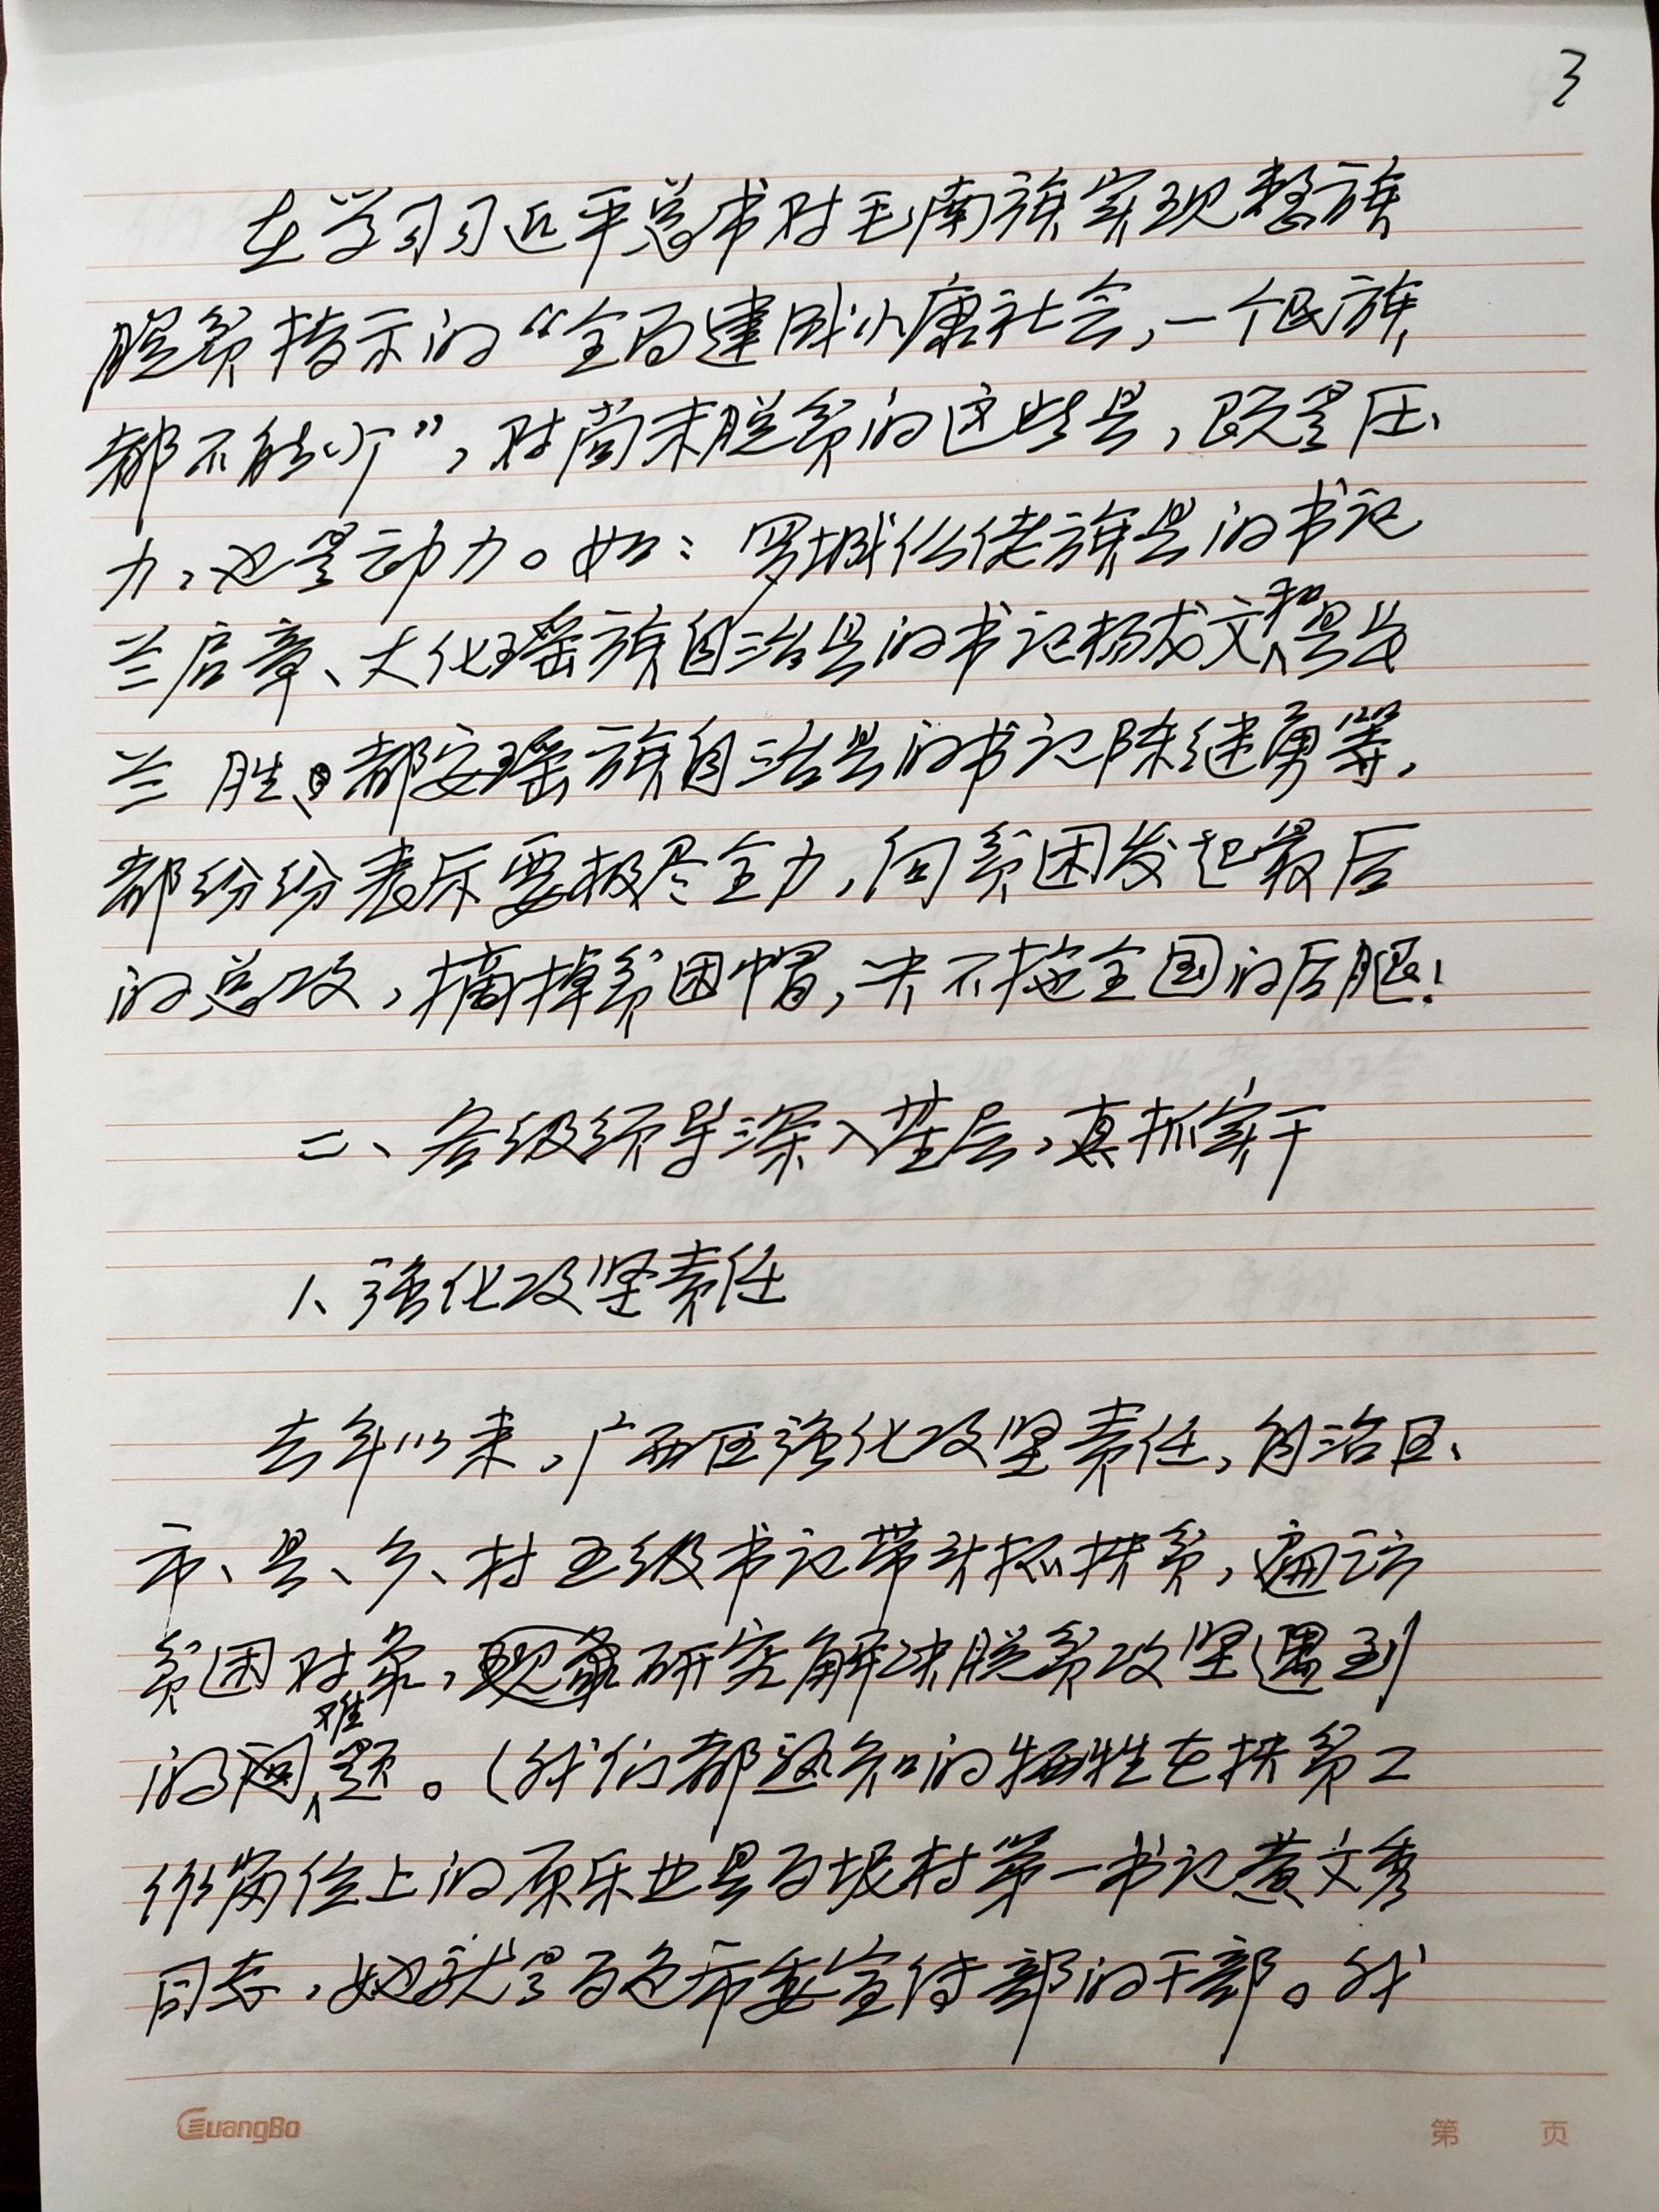 3
在学习习近平总书对毛南族实现整族
脱贫指示的“全面建成小康社会，一个民族
都不能少”，对尚未脱贫的这些县，既是压
力，也是动力。如：罗城仫佬族县的书记
兰启章、大化瑶族自治县的书记杨成文和县长
兰胜、都安瑶族自治县的书记陈继勇等，
都纷纷表示要极尽全力，向贫困发起最后
的总攻，摘掉贫困帽，决不拖全国的后腿！
二、各级领导深入基层，真抓实干
1、强化攻坚责任
去年以来，广西区强化攻坚责任，自治区、
市、县、乡、村五级书记带头抓扶贫，遍访
贫困对象，研究解决脱贫攻坚遇到
的难题。（我们都熟知的牺牲在扶贫工
作岗位上的原乐业县百坭村第一书记黄文秀
同志，她就是百色市委宣传部的干部。我
GuangBo
第 页